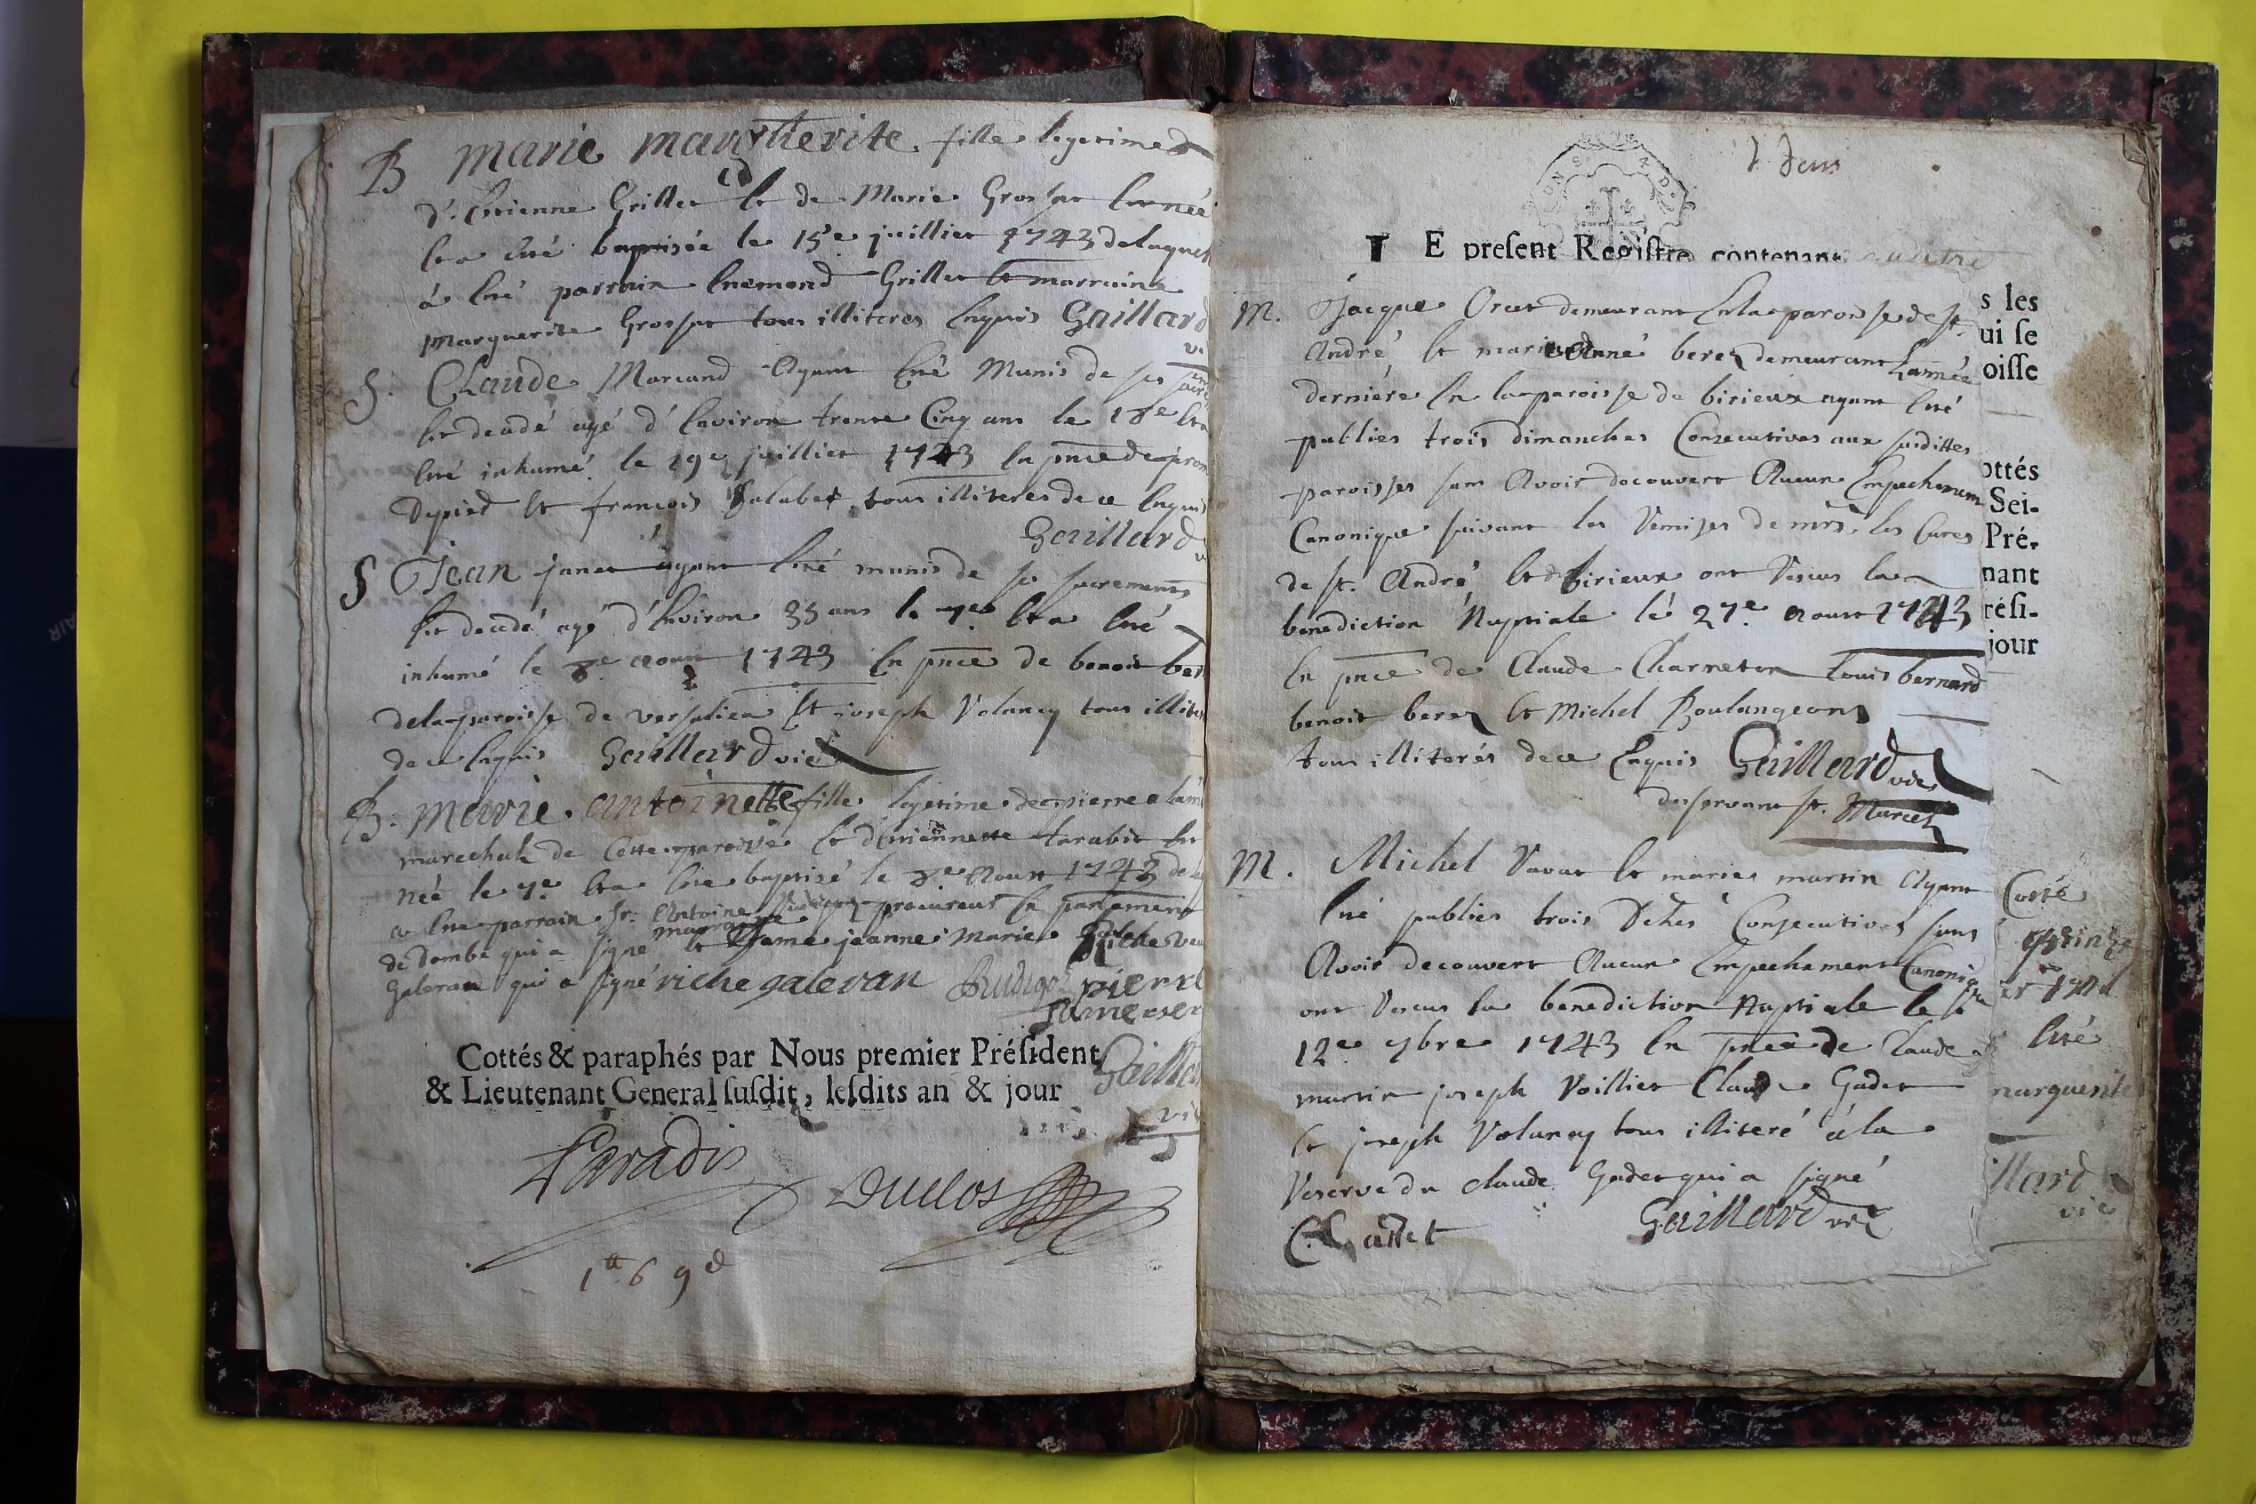 B Marie marguerite fille legetime
d'Etienne Grillet et de Marie Grossat est née
et a etté baptisée le 15e juillier 1743 de laquel
à etté parrain Enemond Grillet et marraine
Marguerite Grossat tous illiteres Enquis Gaillard
S. CLaude Marcand Ayant Etté Munis de ses
est decedé agé d'Environ trente Cinq ans le 18e et a
etté inhumé le 19e juillier 1743 En pnce de
Depied et françois tous illiteres de ce Enquis
Gaillard
S Jean janet ayant Etté munis de ses sacrements
est decedé agé d'Environ 35 ans le 7e et a Etté
inhumé le 8e aoust 1743 En pnce de benoit
de la paroisse de versalieu Et joseph Volancy tous illite
de ce Enquis Gaillard vic
B. Marie antoinette fille legetime de pierre
marechal de Cette paroisse et d'Etiennette tarabit est
Née le 7e et a Etté baptisé le 8e Aoust 1743 de
a Etté parrain Sr. Antoine procureur En parlement
de Dombe qui a signé et marraine Dame jeanne Marie Riche
Galeran qui a signé riche galeran pierre
Cottés & paraphés par Nous premier Président
& Lieutenant General susdit, lesdits an & jour
Gailla
vic
Paradis
Duclos
1tt 6 9d
deux
E present Registre contenant
M. Jacque Orcet demeurant En la paroisse de St.
André et marie Anné berez demeurant L'année
derniére En la paroisse de birieux ayant Etté
publies trois dimanches Consecutives aux susdittes
paroisses sans Avoir decouvert Aucun Empechement
Canonique suivant les Remises de mrs. les Cures
de St. André et de birieux ont Resius la
benediction Nuptiale lé 27e. aoust 1743
En pnce de Claude Charneton Louis bernard
benoit berez et Michel Boulangeons
tous illiterés de ce Enquis Gaillard vic
desservant St. Marcel
M. Michel Vavat et marie martin Ayant
Etté publies trois Consecutives sans
Avoir decouvert Aucun Empechement Canonique
ont Resius la benediction Nuptiale le
12e 7bre 1743 En pnce de Claude
martin joseph Voillier Claude Gadet
et joseph Volancy tous illiteré à la
Reserve du claude Gadet qui a signé
C. Gadet Gaillard vic
s les
ui se
oisse
ottés
Sei-
Pré-
nant
rési-
jour
Etté
marguerite
illard
vic